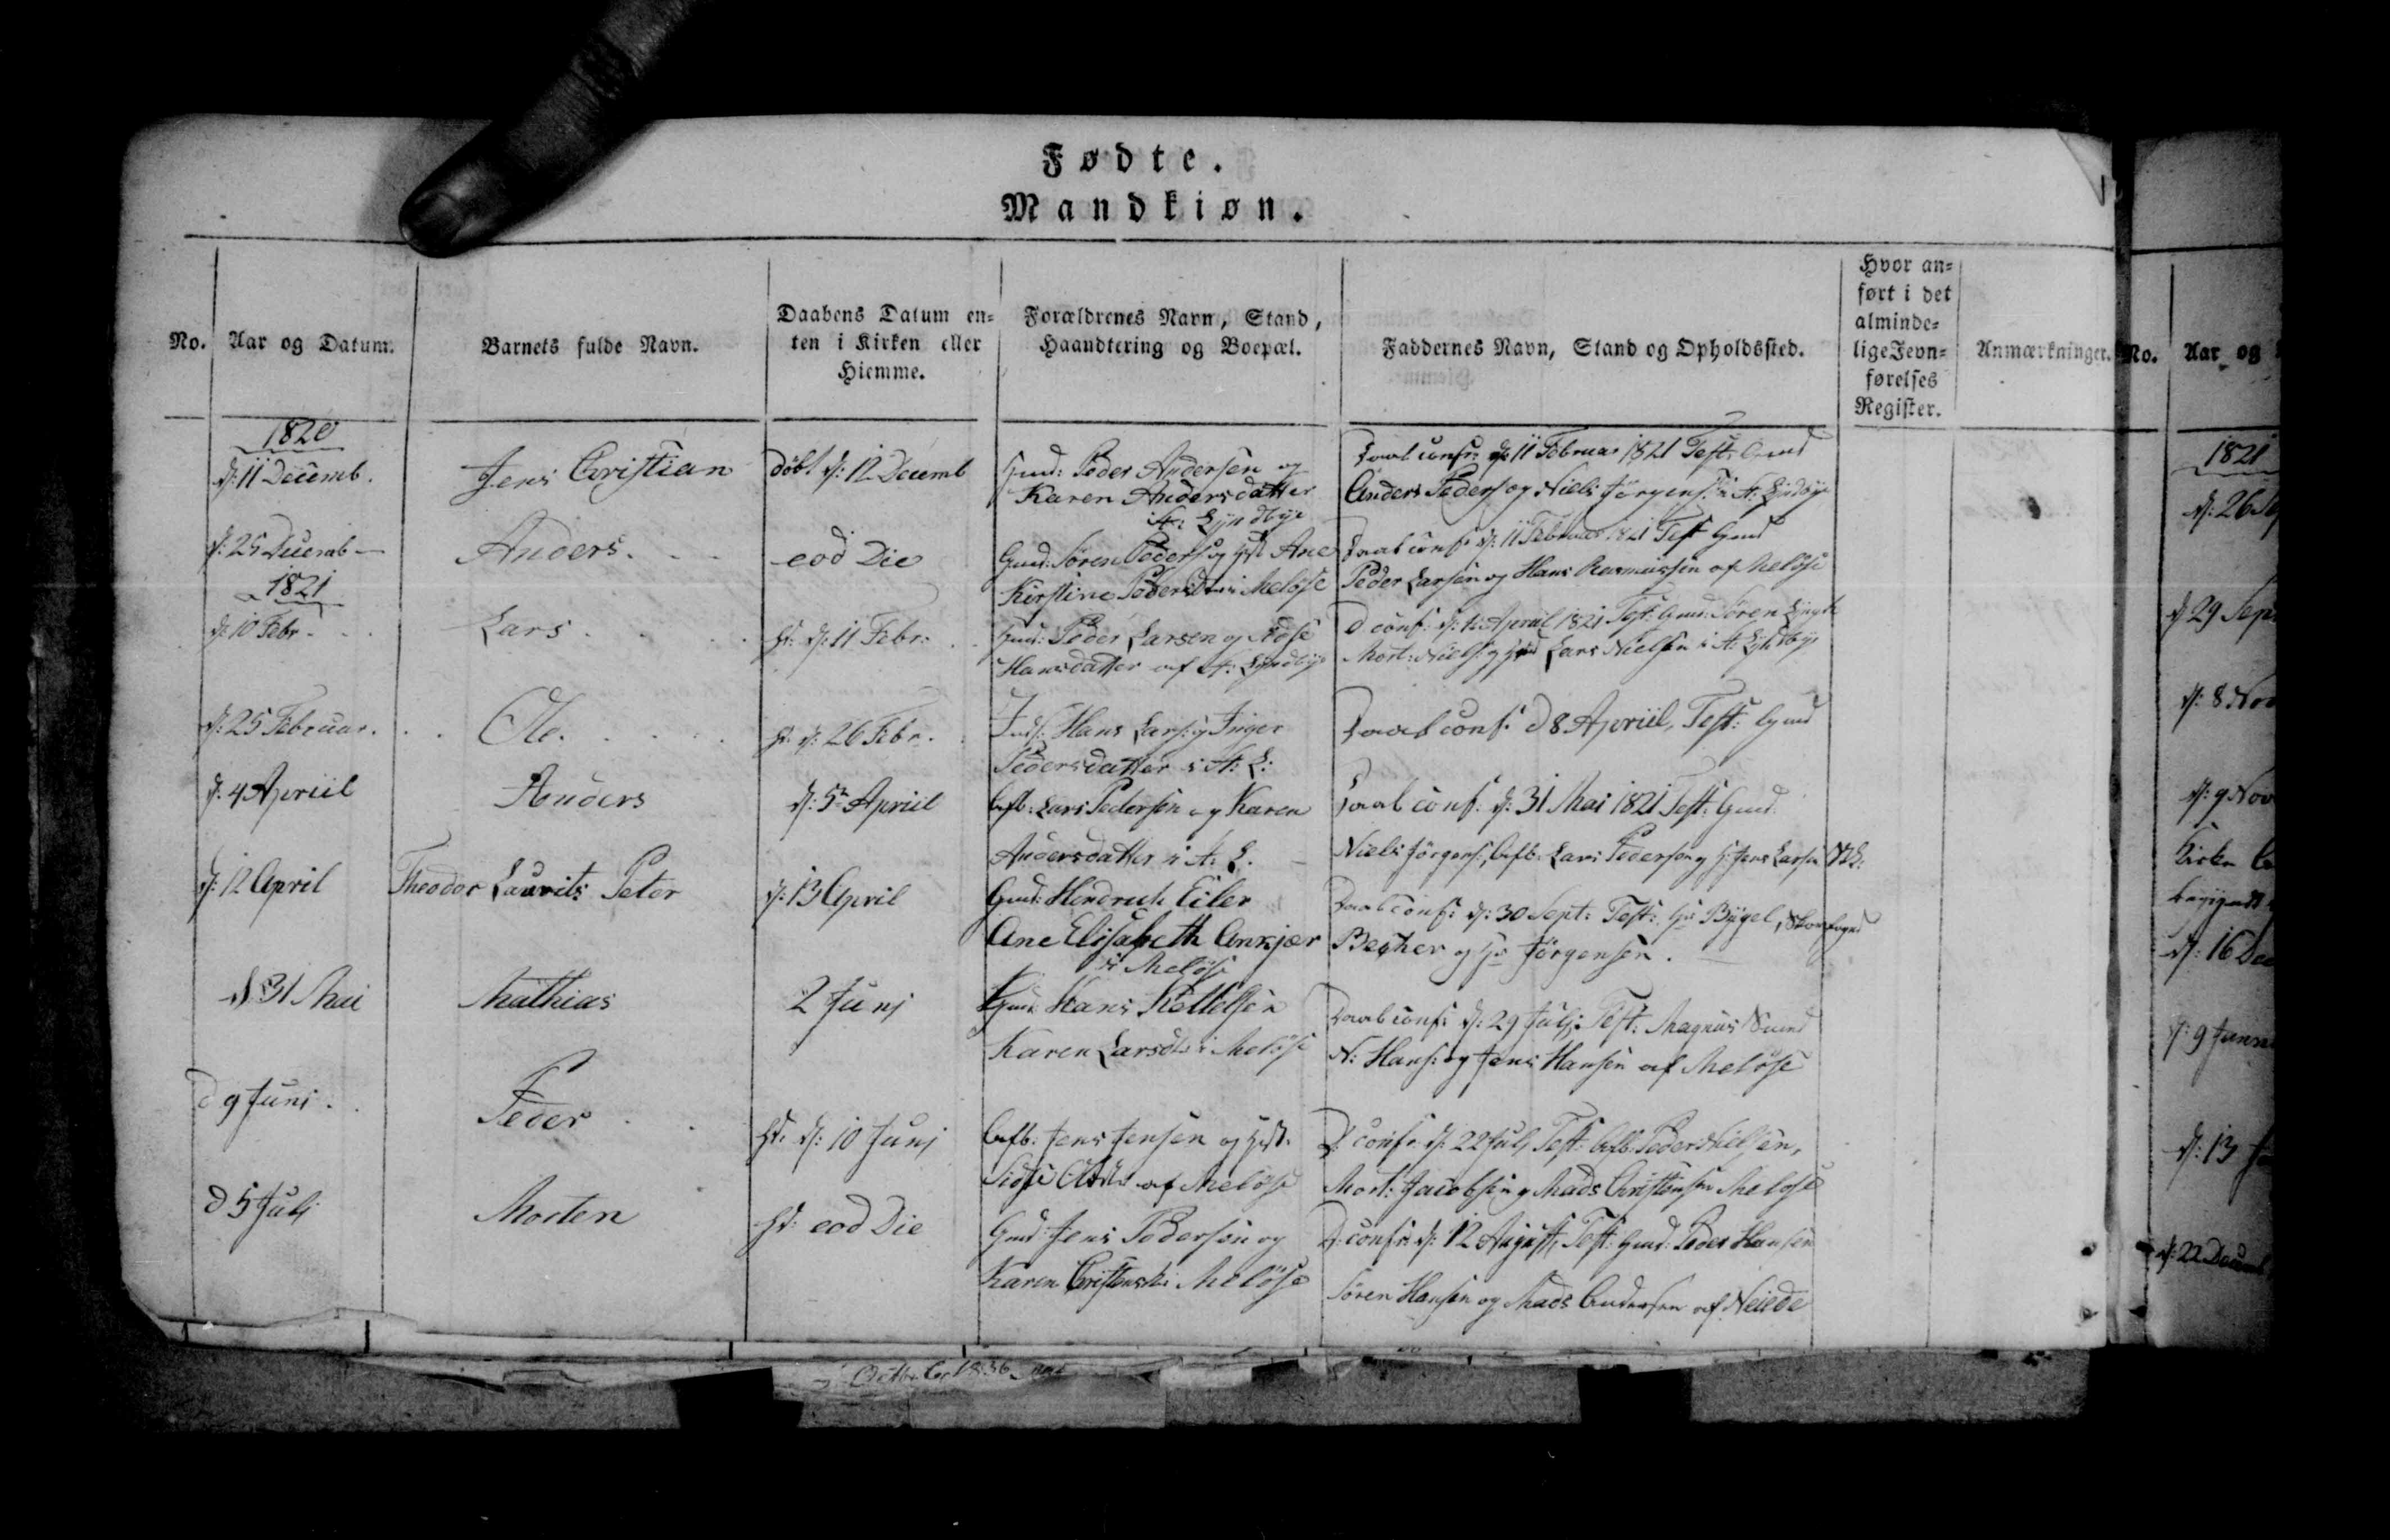 Fødte.
Mandkiøn.
No.
Aar og Datum.
Barnets fulde Navn.
Daabens Datum en-
ten i Kirken eller
Hiemme.
Forældrenes Navn, Stand,
Haandtering og Boepæl.
Faddernes Navn, Stand og Opholdssted.
Hvor an-
ført i det
alminde-
lige Jevn-
førelses
Register.
Anmærkninger.
1820
d: 11 Decemb.
Jens Christian
döbt d: 12 Decemb
Gmd: Peder Andersen og
Karen Andersdatter
i A: Lyndbye
Daab conf: d: 11 Februar 1821 Test: Gmd
Anders Peders og Niels Jörgens: i A: Lyndbye
d: 25 Decemb
Anders
eod Die
Gmd: Sören Peders og Hst Ane
Kirstine Pedersdtr i Melöse
Daab conf: d: 11 Februar 1821 Test Gmd
Peder Larsen og Hans Rasmussen af Melöse
1821
d: 10 Febr
Lars
d: 11 Febr:
Gmd: Peder Larsen og
Hansdatter af A: Lyndbye
D conf: d: Apriil 1821 Test: Gmd: Sören
Mort: Niels: og Lars Nielsen i A: Lyndbye
d: 25 Februar.
Ole.
d: 26 Febr.
Inds: Hans Lars: og Inger
Pedersdatter i A: L:
Daab conf: d 8 Apriil, Test: Gmd
d: 4 Apriil
Anders
d: 5te Apriil
Lars Pedersen og Karen
Andersdatter i A: L.
Daab conf: d: 31 Mai 1821 Test: Gmd
Niels Jörgens:, Lars Pedersen og Jens Larsen
d: 12 April
Theodor Laurits Peter
d: 13 April
Gmd: Hendrich Eiler
Ane Elisabeth Ankjær
i Melöse
Daab conf: d: 30 Sept: Test: Hr Bügel, Skovfoged
Becher og Hr Jörgensen.
d 31 Mai
Mathias
2 Junj
Gmd: Hans Kettelsen
Karen Larsdtr i Melöse
Daab conf: d: 29 Julj: Test: Magnus
N: Hans: og Jens Hansen af Melöse
d 9 Juni.
Peder
d: 10 Junj
Jens Jensen og Hst:
Sidse af Melöse
D: conf: d: 22 Julj Test: Peder Nielsen,
Mort: Jacobsen og Mads Christensen Melöse
d 5 Julj
Morten
eod Die
Gmd: Jens Pedersen og
Karen i Melöse
D: conf: d: 12 August, Test: Gmd: Peder Hansen
Sören Hansen og Mads Andersen af Neiede
No.
Aar og
1821
d: 26
d 29 Sep
d: 8 Nov
d: 9 Nov
d: 16 Dec
d: 9
d: 13
d: 22 Decemb